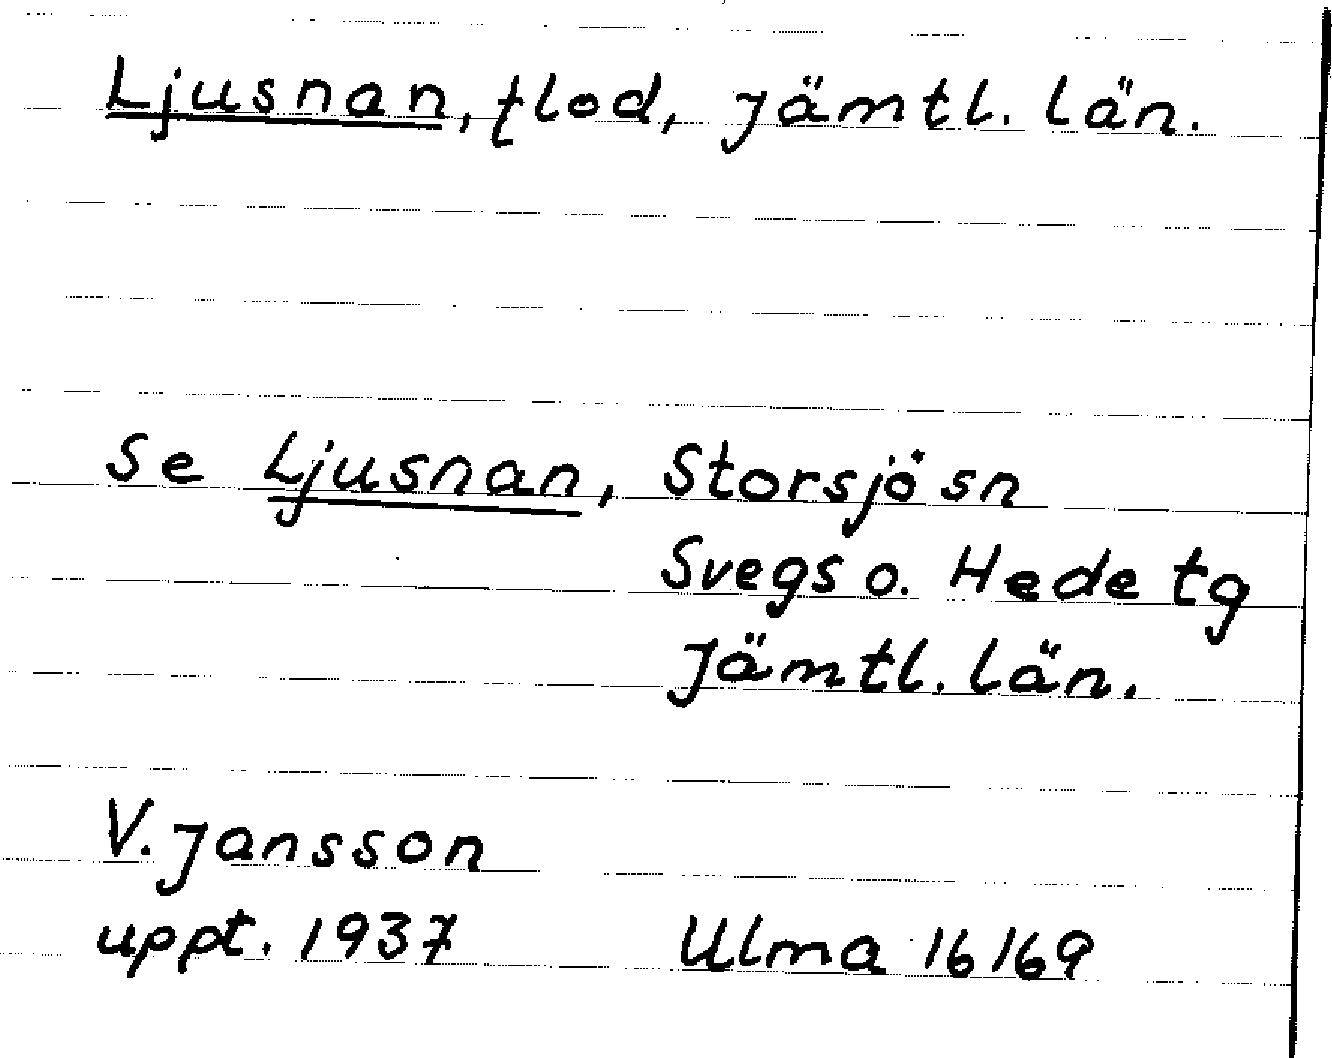 Ljusnan, flod, Jämtl. län.
Se Ljusnan, Storsjö sn
Svegs o. Hede tg
Jämtl. län.
V. Jansson
uppt. 1937 Ulma 16169